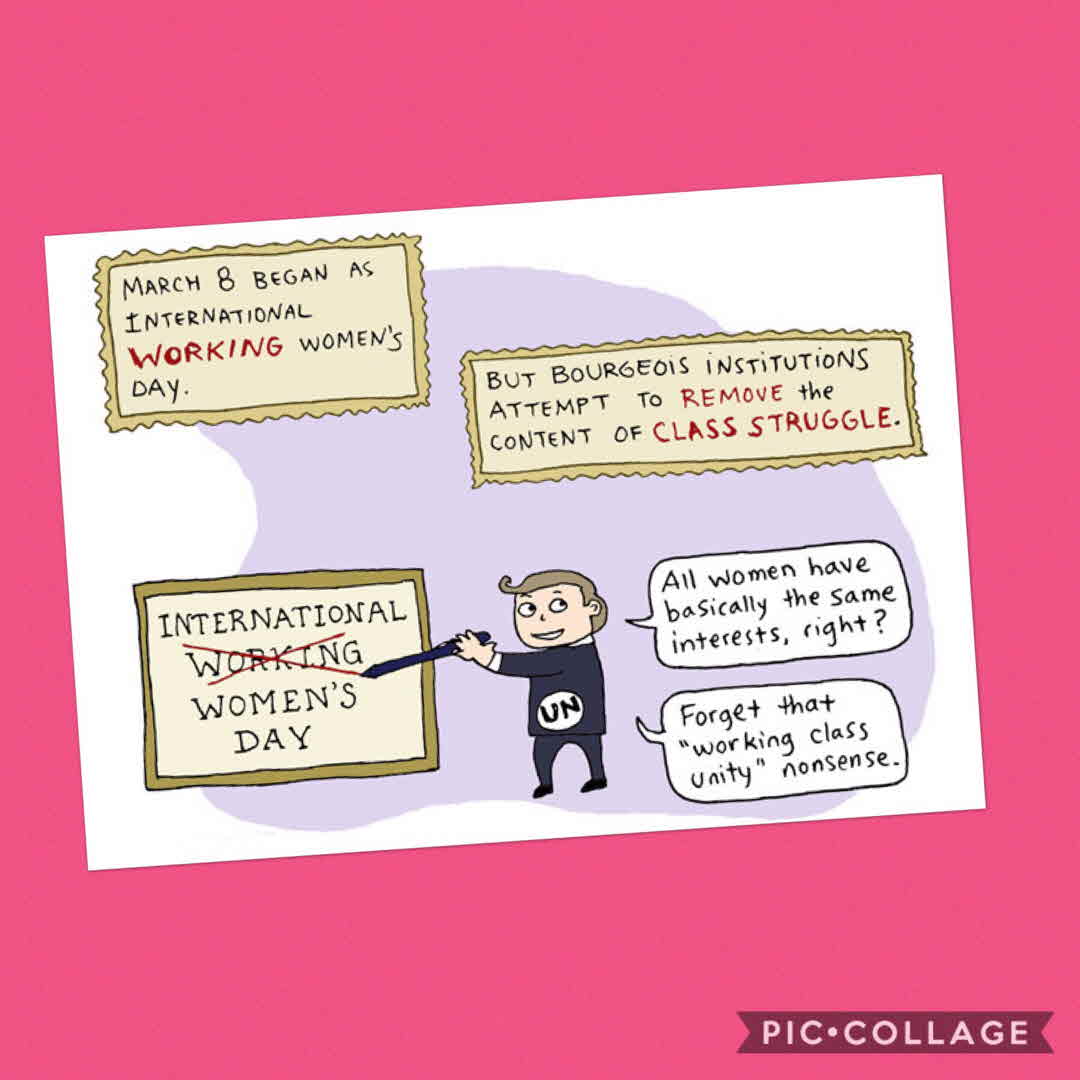 MARCH 8 BEGAN AS
INTERNATIONAL
WORKING WOMEN'S
DAY.
BUT BOURGEOIS INSTITUTIONS
ATTEMPT TO REMOVE the
CONTENT OF CLASS STRUGGLE.
INTERNATIONAL
WORKING
WOMEN'S
DAY
UN
All women have
basically the same
interests, right?
Forget that
"working class
unity" nonsense.
PIC•COLLAGE